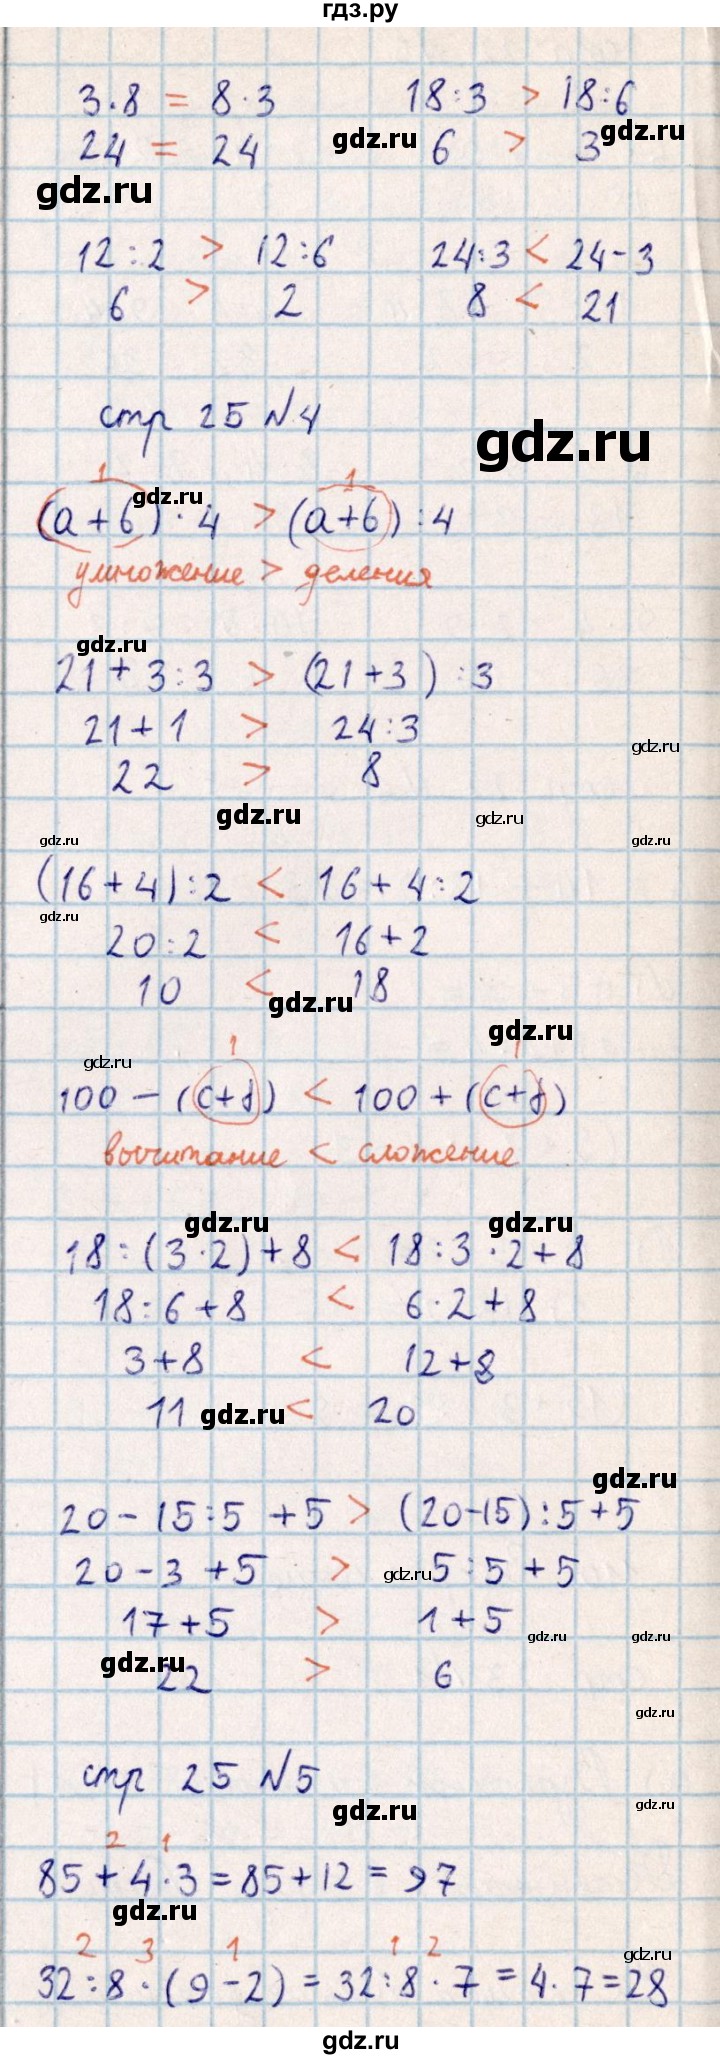 гдз.ру
3·8 = 8·3 18:3 > 18:6
24 = 24 6 > 3
gdz.ru gdz.ru
gdz.ru
12:2 > 12:6 24:3 < 24-3
6 > 2 8 < 21
стр 25 №4
gdz.ru
1 gdz.ru 1
(а+б)·4 > (а+б):4
умножение > деления
gdz.ru
21+3:3 > (21+3):3
21+1 > 24:3
gdz.ru
22 > 8
gdz.ru gdz.ru
gdz.ru gdz.ru
(16+4):2 < 16+4:2
gdz.ru
20:2 < 16+2
10 < 18
gdz.ru
gdz.ru
1 1
gdz.ru
100-(c+d) < 100+(c+d)
вычитание < сложение
gdz.ru gdz.ru
18:(3·2)+8 < 18:3·2+8
18:6+8 < 6·2+8
3+8 < 12+8
11 < 20
gdz.ru
gdz.ru
20-15:5+5 > (20-15):5+5
20-3+5 > 5:5+5
gdz.ru
17+5 > 1+5
gdz.ru gdz.ru
gdz.ru
22 > 6
gdz.ru
стр 25 №5
gdz.ru gdz.ru
2 1
85+4·3=85+12=97
gdz.ru
2 3 1 1 2
gdz.ru
32:8·(9-2)=32:8·7=4·7=28
gdz.ru